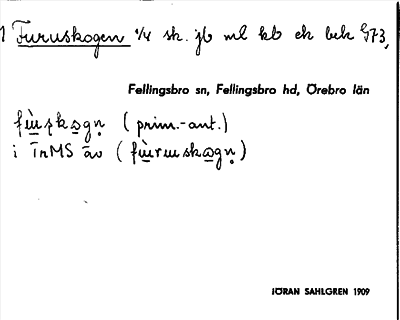 Furuskogen ¼ sk. jb ml kb ek bek G73,
Fellingsbro sn, Fellingsbro hd, Örebro län
(prim.-ant.)
i TnMS äv (
JÖRAN SAHLGREN 1909